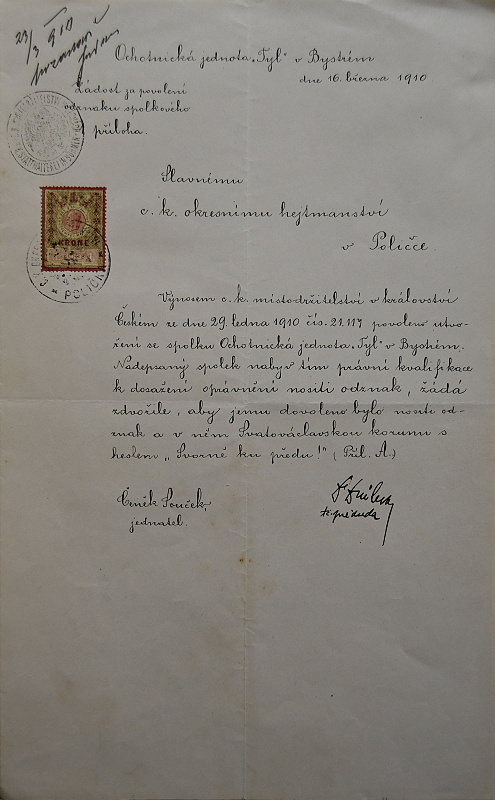 23/3 910
Ochotnická jednota „Tyl" v Bystrém
dne 16. března 1910
Žádost za povolení
odznaku spolkového
příloha.
Slavnému
c. k. okresnímu hejtmanství
v Poličce.
KRONE
POLIČKA
Výnosem c. k. místodržitelství v království
Českém ze dne 29. ledna 1910 čís. 21.117 povoleno utvo-
ření se spolku Ochotnická jednota „Tyl" v Bystrém.
Nadepsaný spolek nabyv tím právní kvalifikace
k dosažení oprávnění nositi odznak, žádá
zdvořile, aby jemu dovoleno bylo nositi od-
znak a v něm Svatováclavskou korunu s
heslem „Svorně ku předu!" (Příl. A.)
Čeněk Souček,
jednatel.